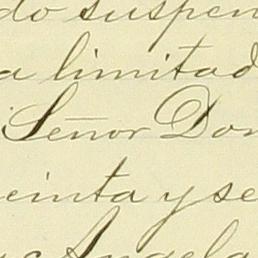 do suspen
a limitad
Señor Don
einta y se
Angela